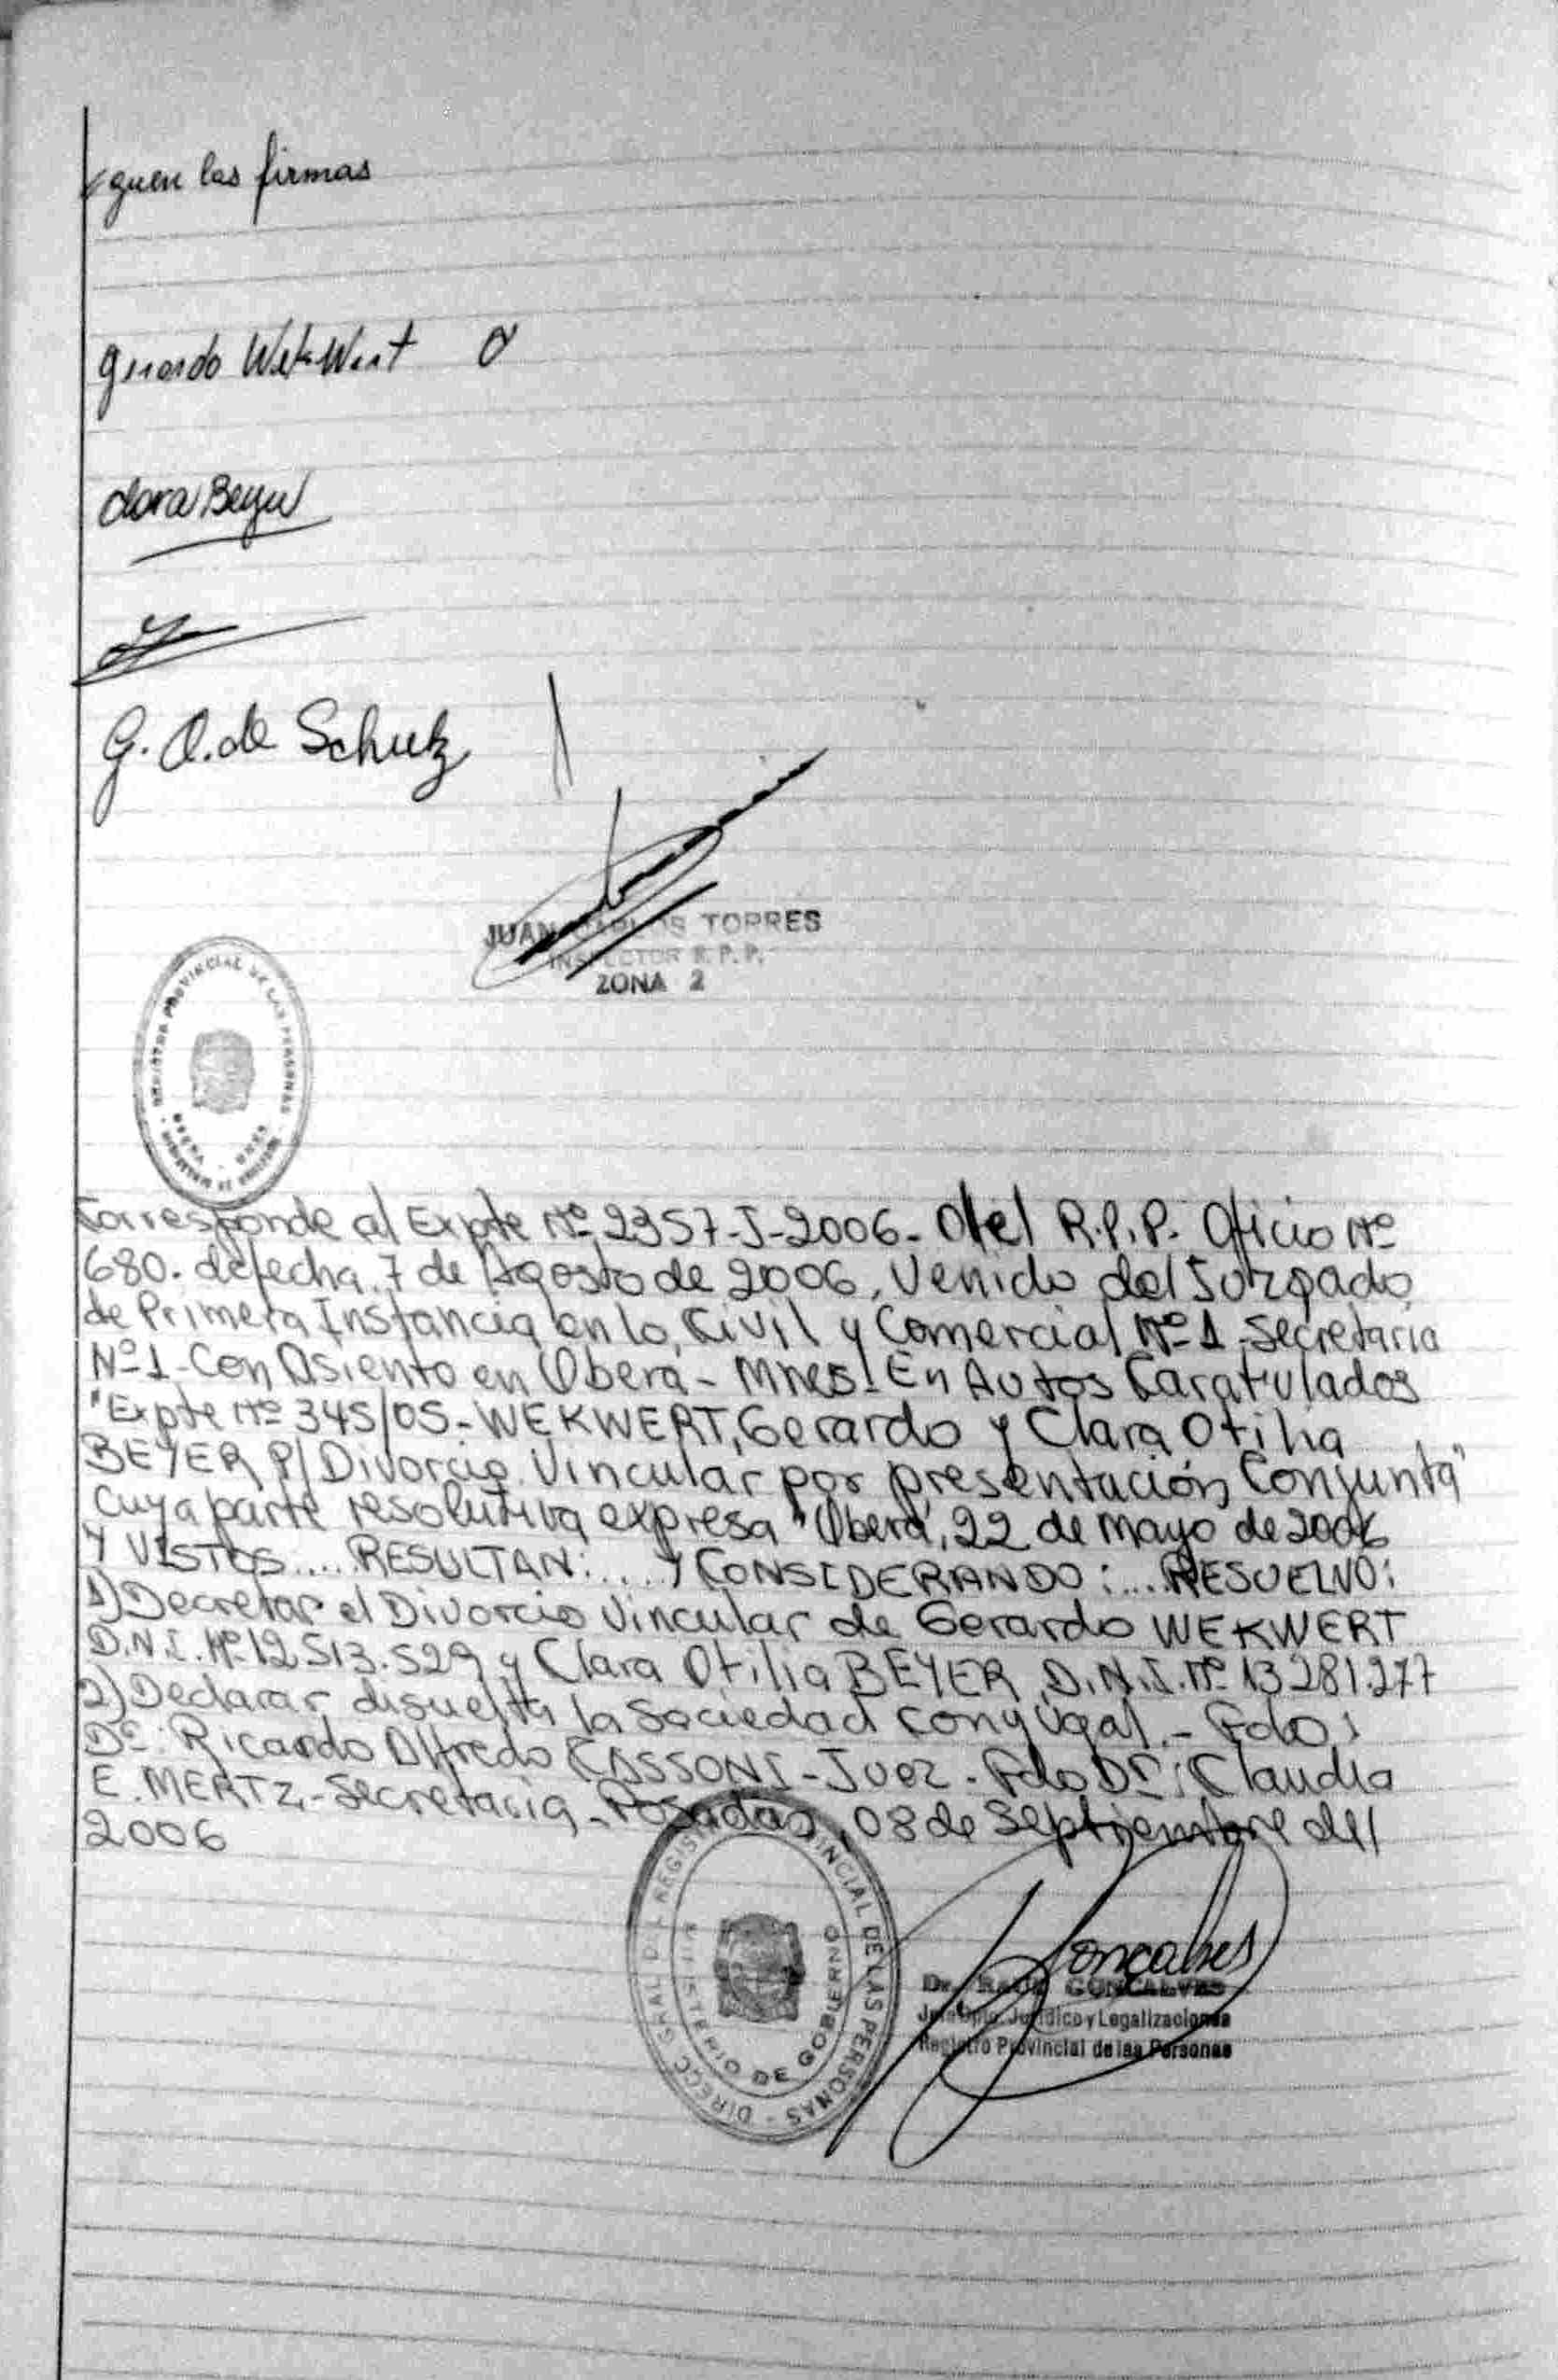 guen las firmas
Gerardo WekWert
Clara Beyer
G. O. de Schulz
JUAN CARLOS TORRES
INSPECTOR R. P. P.
ZONA 2
REGISTRO PROVINCIAL DE LAS PERSONAS
Corresponde al Expte Nº 2357-J-2006- del R.P.P. Oficio Nº
680. de fecha, 7 de Agosto de 2006, Venido del Juzgado,
de Primera Instancia en lo, Civil y Comercial Nº 1 -Secretaria
Nº 1 -Con Asiento en Oberá - Mnes - En Autos Caratulados
"Expte Nº 345/05- WEKWERT, Gerardo y Clara Otilia
BEYER P/ Divorcio Vincular por presentación Conjunta"
Cuya parte resolutiva expresa "Oberá, 22 de mayo de 2006
Y VISTOS..... RESULTAN:.... Y CONSIDERANDO:... RESUELVO:
1) Decretar el Divorcio Vincular de Gerardo WEKWERT
D.N.I. Nº 12.513.529 y Clara Otilia BEYER D.N.I. Nº 13281.277
2) Declarar disuelta la Sociedad Conyugal. - Fdo:
Dr: Ricardo Alfredo CASSONI - Juez. Fdo Dra: Claudia
E. MERTZ - Secretaria - Posadas, 08 de Septiembre del
2006
DIRECC GRAL DEL REGISTRO PROVINCIAL DE LAS PERSONAS -
MINISTERIO DE GOBIERNO
Goncalves
Dr. RAUL GONCALVES
Jefe Dpto. Jurídico y Legalizaciones
Registro Provincial de las Personas